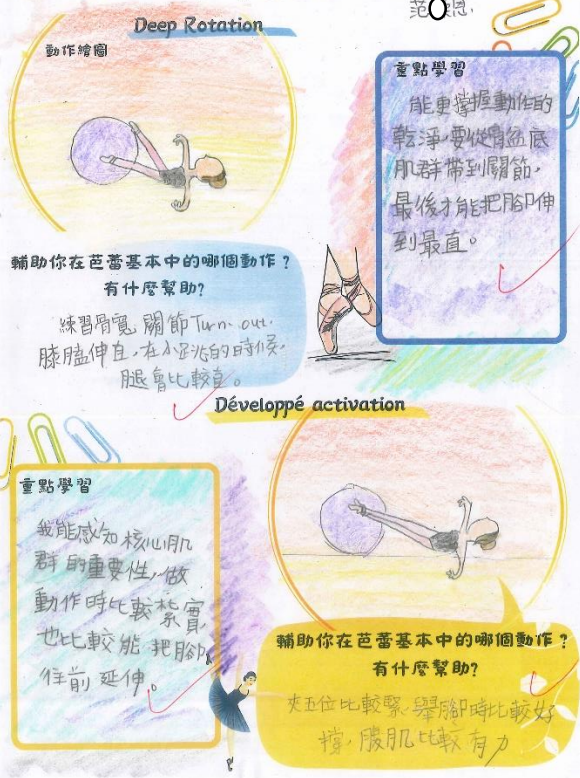 范O恩
Deep Rotation
動作繪圖
重點學習
能更掌握動作的
乾淨,要從骨盆底
肌群帶到關節,
最後才能把腳伸
到最直。
輔助你在芭蕾基本中的哪個動作?
有什麼幫助?
練習骨寬關節Turn-out.
膝膕伸直,在小跳的時候,
腿會比較直。
Développé activation
重點學習
我能感知核心肌
群的重要性,做
動作時比較紮實
也比較能把腳
往前延伸。
輔助你在芭蕾基本中的哪個動作?
有什麼幫助?
夾五位比較緊,舉腳時比較好
撐,腹肌比較有力